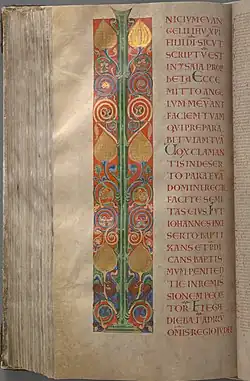 NICIUM EUAN
GELII IHU XPI
FILII DI SICUT
SCRIPTU EST
INYSAIA PROP
HETA ECCE
MITTO ANGE
LVM MEV AN
FACIEM TVAM
QVI PREPARA
BIT VIAM TVA
VOX CLAMAN
TIS IN DESER
TO PARA VIA
DOMINI RECT
FACITE SEMI
TAS EIVS
IOHANNES IN
SERTO BAPTI
ZANS ET PDI
CANS BAPTIS
MVM PENITE
IN REMIS
SIONEM PECC
TOR ET EGRE
DIEBA
OMIS REGIO IVDE